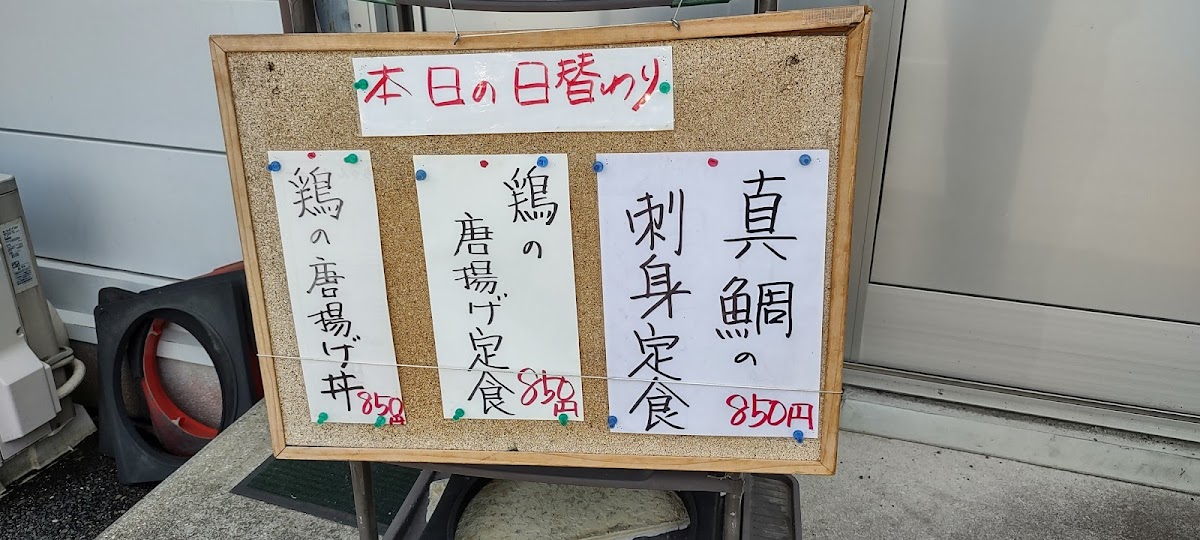 本日の日替わり
真鯛の
刺身定食
850円
鶏の
唐揚げ定食
850円
鶏の唐揚げ丼
850円